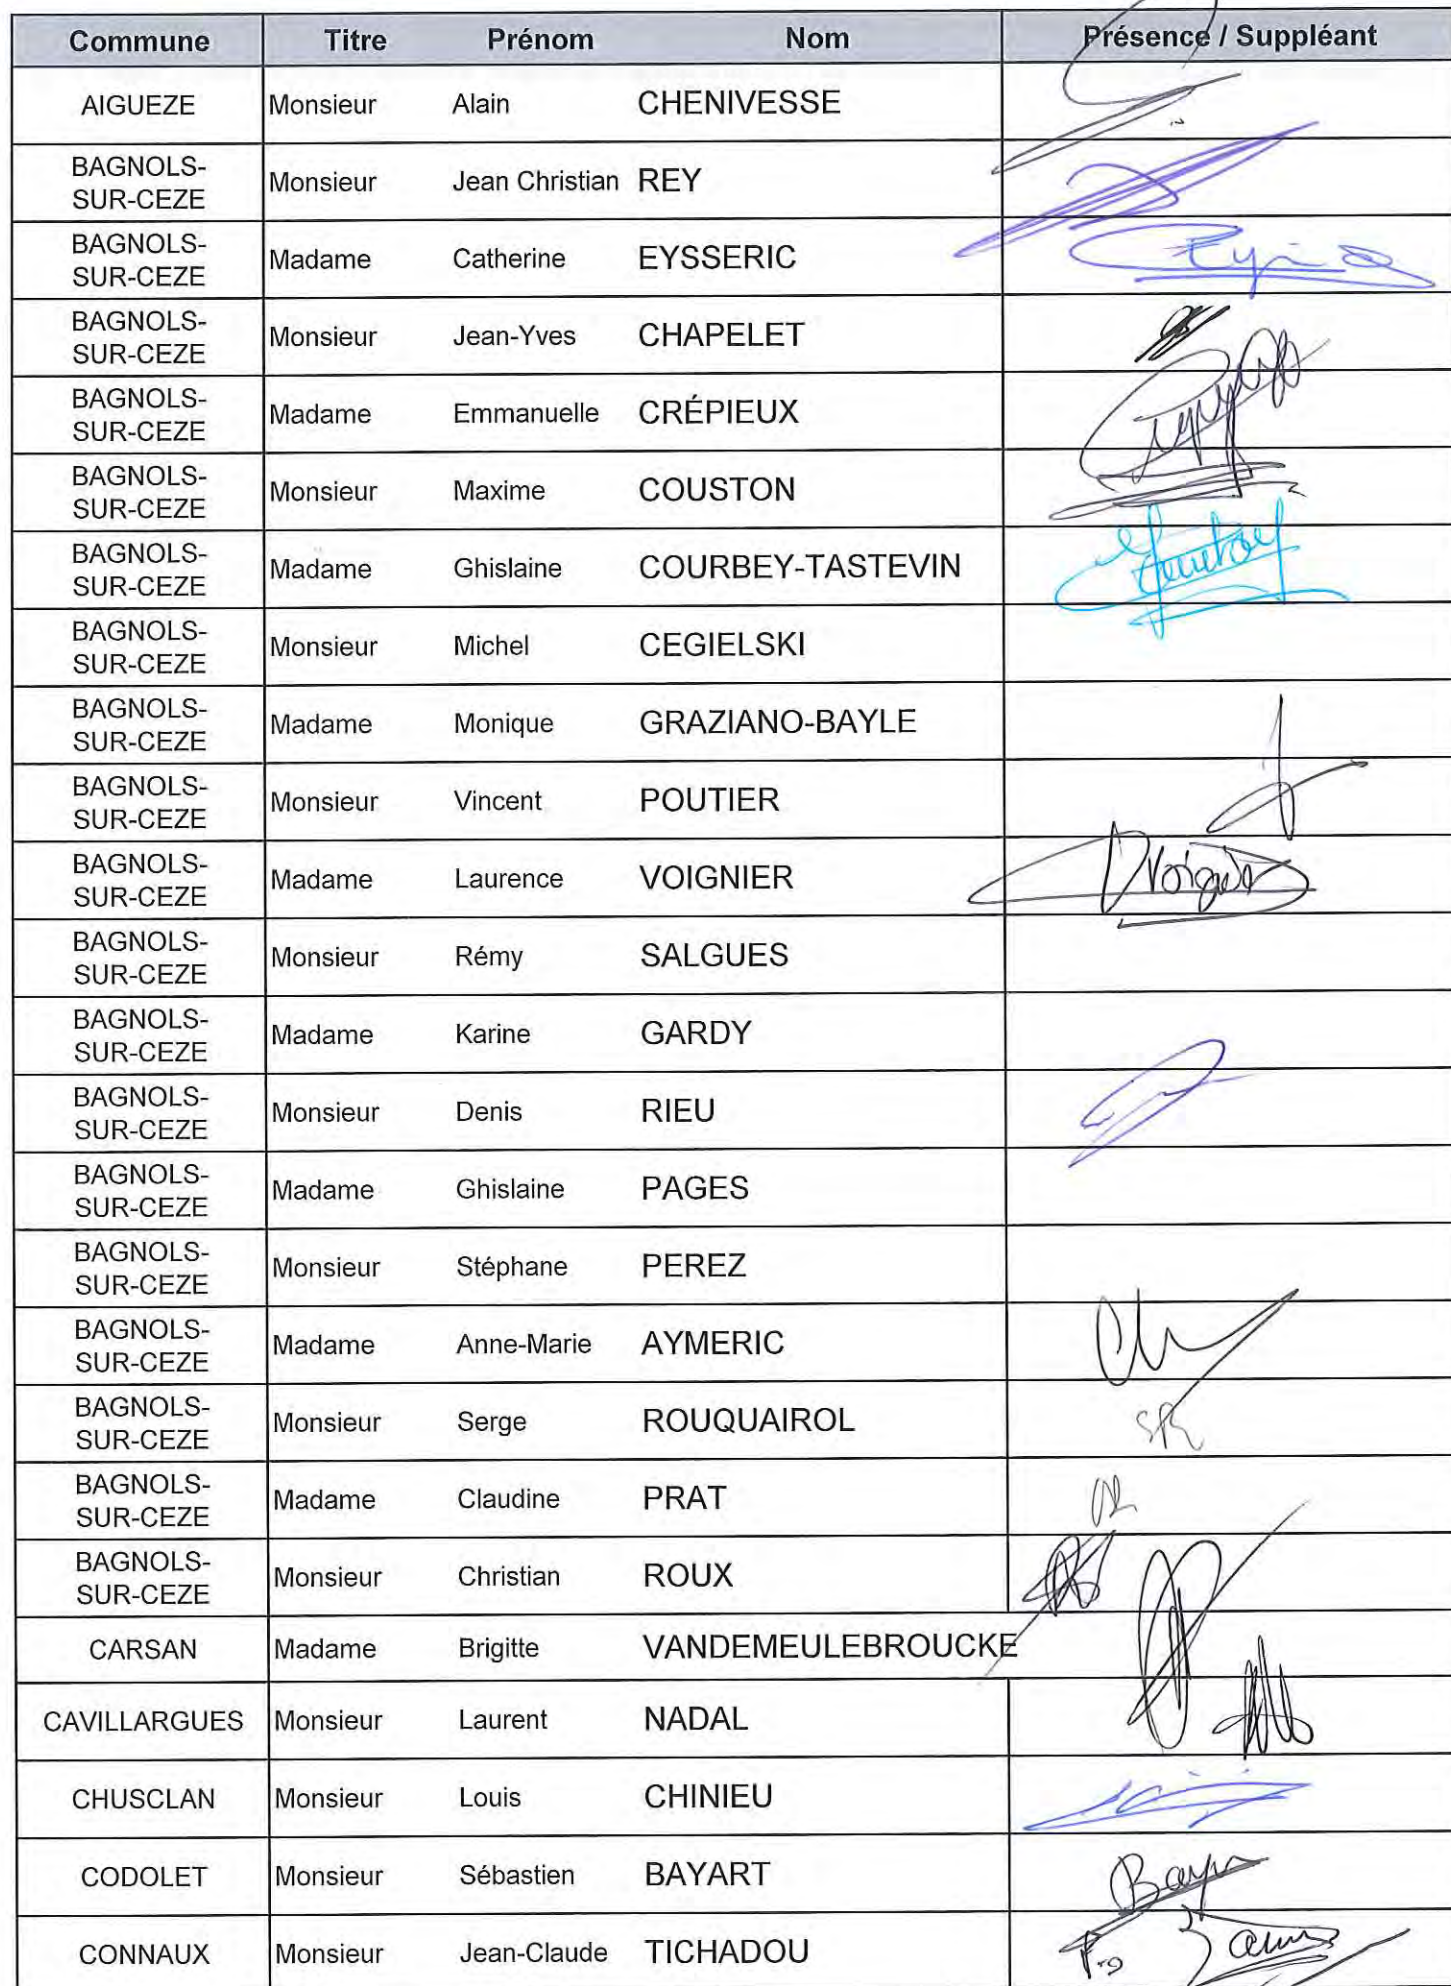 Commune Titre Prénom Nom Présence / Suppléant
AIGUEZE Monsieur Alain CHENIVESSE
BAGNOLS-
SUR-CEZE Monsieur Jean Christian REY
BAGNOLS-
SUR-CEZE Madame Catherine EYSSERIC
BAGNOLS-
SUR-CEZE Monsieur Jean-Yves CHAPELET
BAGNOLS-
SUR-CEZE Madame Emmanuelle CRÉPIEUX
BAGNOLS-
SUR-CEZE Monsieur Maxime COUSTON
BAGNOLS-
SUR-CEZE Madame Ghislaine COURBEY-TASTEVIN
BAGNOLS-
SUR-CEZE Monsieur Michel CEGIELSKI
BAGNOLS-
SUR-CEZE Madame Monique GRAZIANO-BAYLE
BAGNOLS-
SUR-CEZE Monsieur Vincent POUTIER
BAGNOLS-
SUR-CEZE Madame Laurence VOIGNIER Voignier
BAGNOLS-
SUR-CEZE Monsieur Rémy SALGUES
BAGNOLS-
SUR-CEZE Madame Karine GARDY
BAGNOLS-
SUR-CEZE Monsieur Denis RIEU
BAGNOLS-
SUR-CEZE Madame Ghislaine PAGES
BAGNOLS-
SUR-CEZE Monsieur Stéphane PEREZ
BAGNOLS-
SUR-CEZE Madame Anne-Marie AYMERIC
BAGNOLS-
SUR-CEZE Monsieur Serge ROUQUAIROL SR
BAGNOLS-
SUR-CEZE Madame Claudine PRAT
BAGNOLS-
SUR-CEZE Monsieur Christian ROUX
CARSAN Madame Brigitte VANDEMEULEBROUCKE
CAVILLARGUES Monsieur Laurent NADAL
CHUSCLAN Monsieur Louis CHINIEU
CODOLET Monsieur Sébastien BAYART
CONNAUX Monsieur Jean-Claude TICHADOU